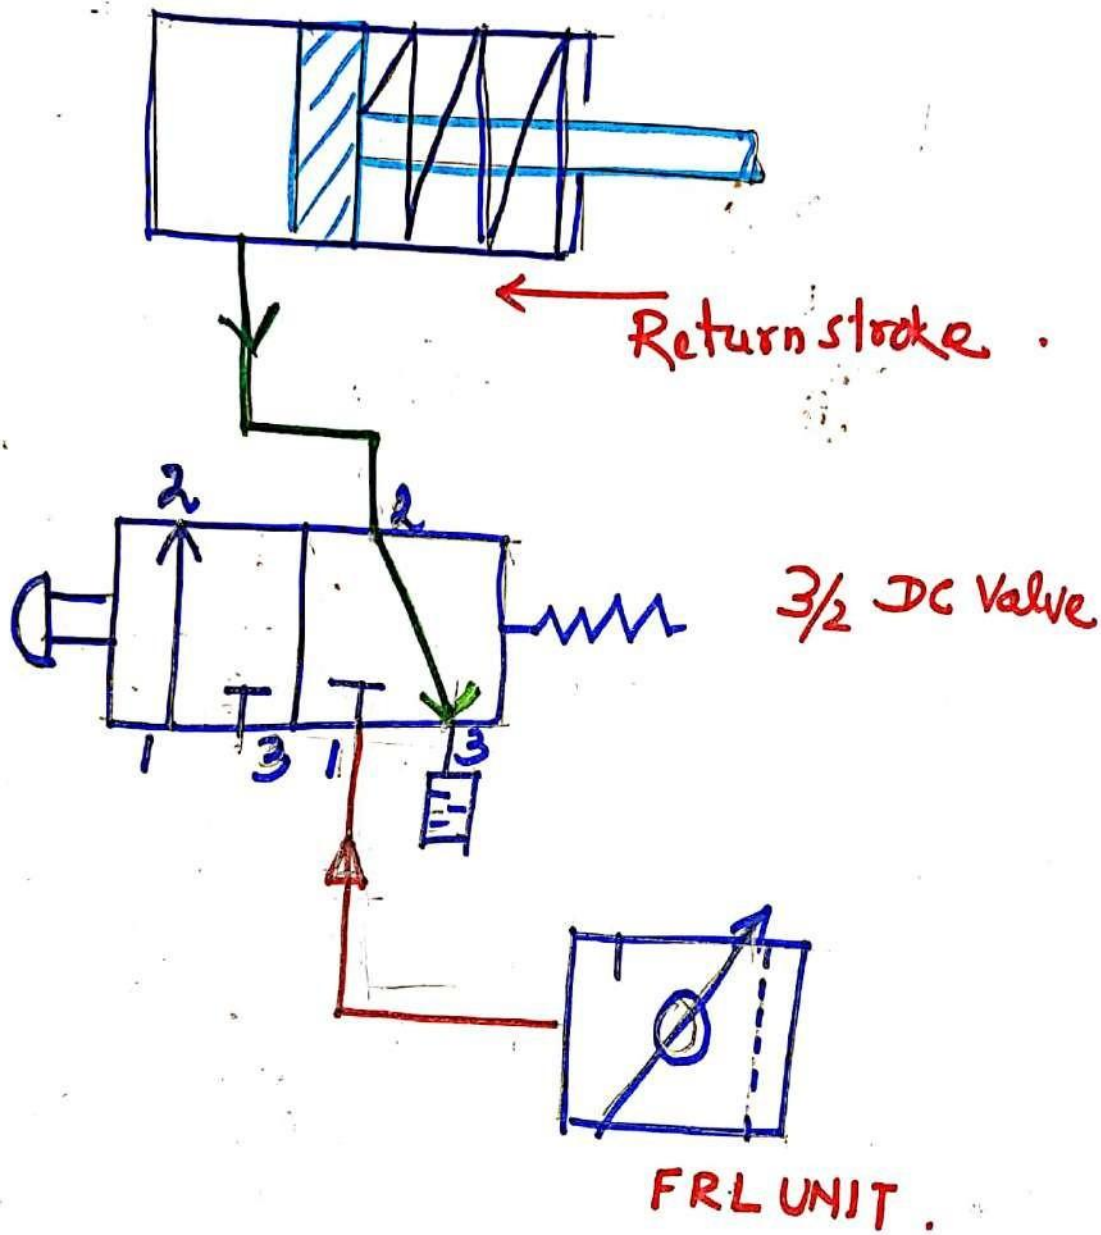 Return stroke .
2
2
3/2 DC Valve
1 3 1 3
FRL UNIT .